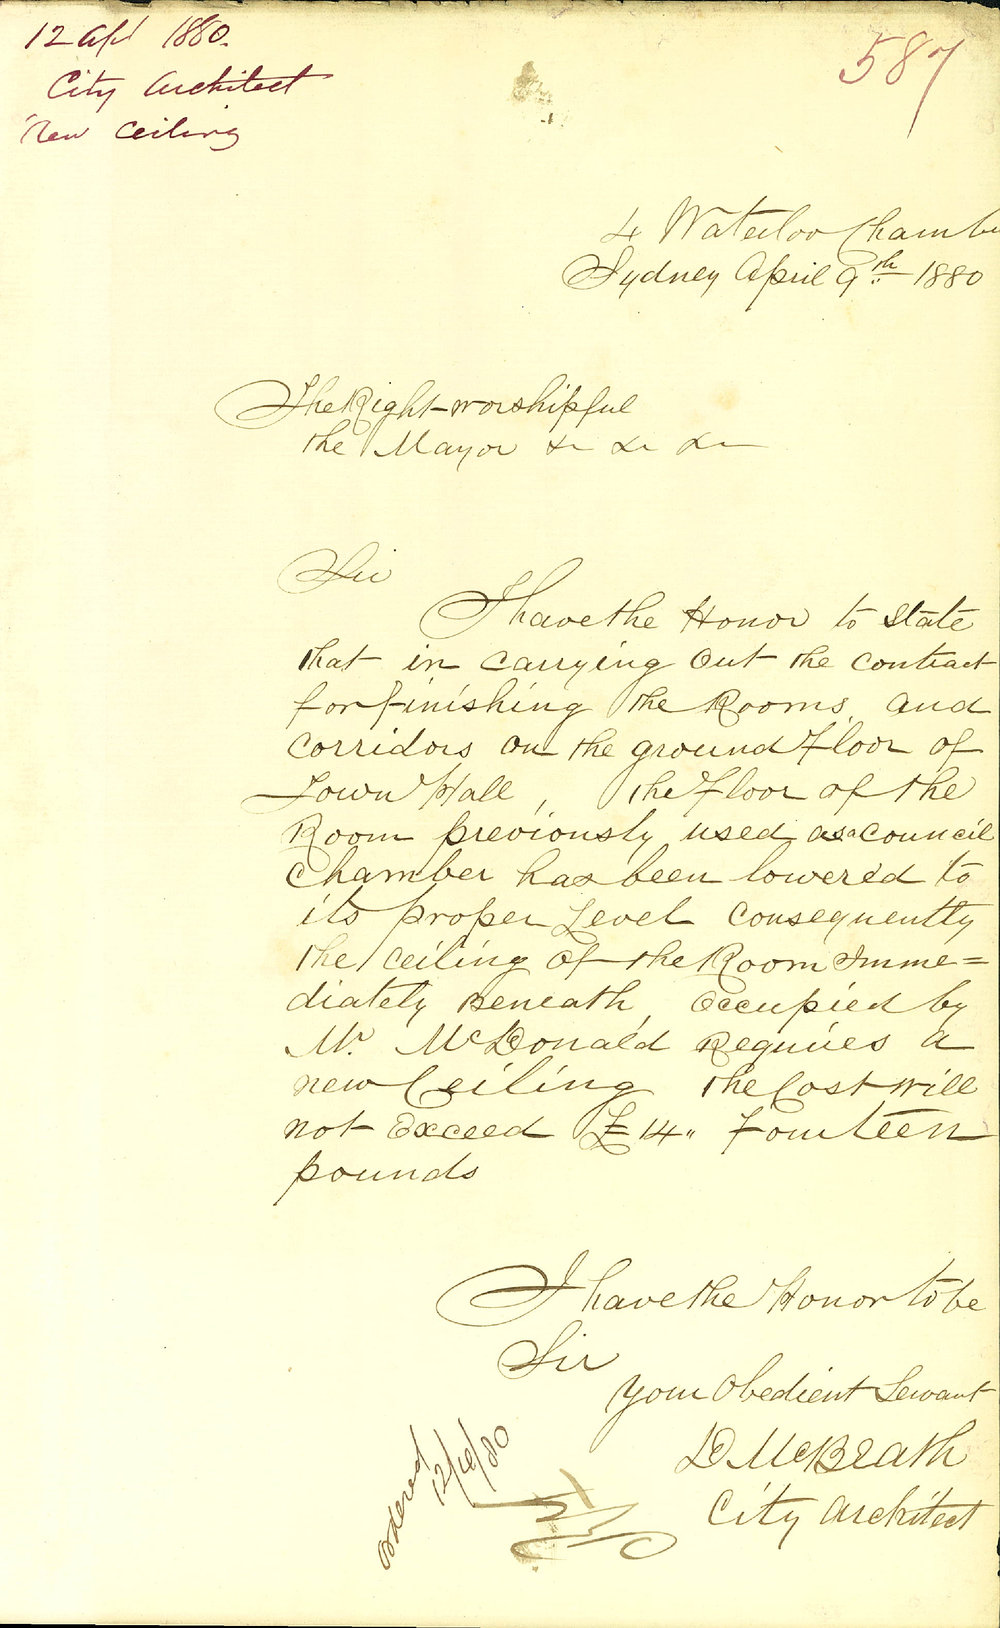 12 Apl 1880.
City Architect
New Ceiling
587
4 Waterloo Chambe
Sydney April 9th 1880
The Right worshipful
the Mayor &c &c &c
Sir
I have the Honor to State
that in carrying out the contract
for finishing the Rooms and
corridors on the ground floor of
Town Hall, the floor of the
Room previously used as a council
chamber has been lowered to
its proper Level consequently
the ceiling of the Room Imme=
diately Beneath, occupied by
Mr. McDonald Requires a
new Ceiling the Cost will
not Exceed £14,, Fourteen
pounds
I have the Honor to be
Sir
your Obedient Servant
D McBeath
City Architect
Ordered